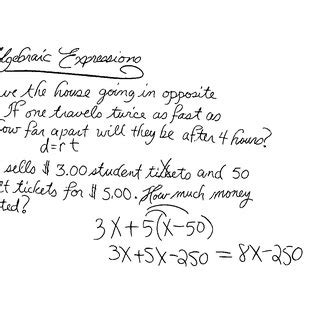 lgebraic Expressions
ve the house going in opposite
If one travels twice as fast as
ow far apart will they be after 4 hours?
d=rt
sells $3.00 student tickets and 50
t tickets for $5.00. How much money
ted?
X
3X+5(X-50)
3X+5X-250=8X-250